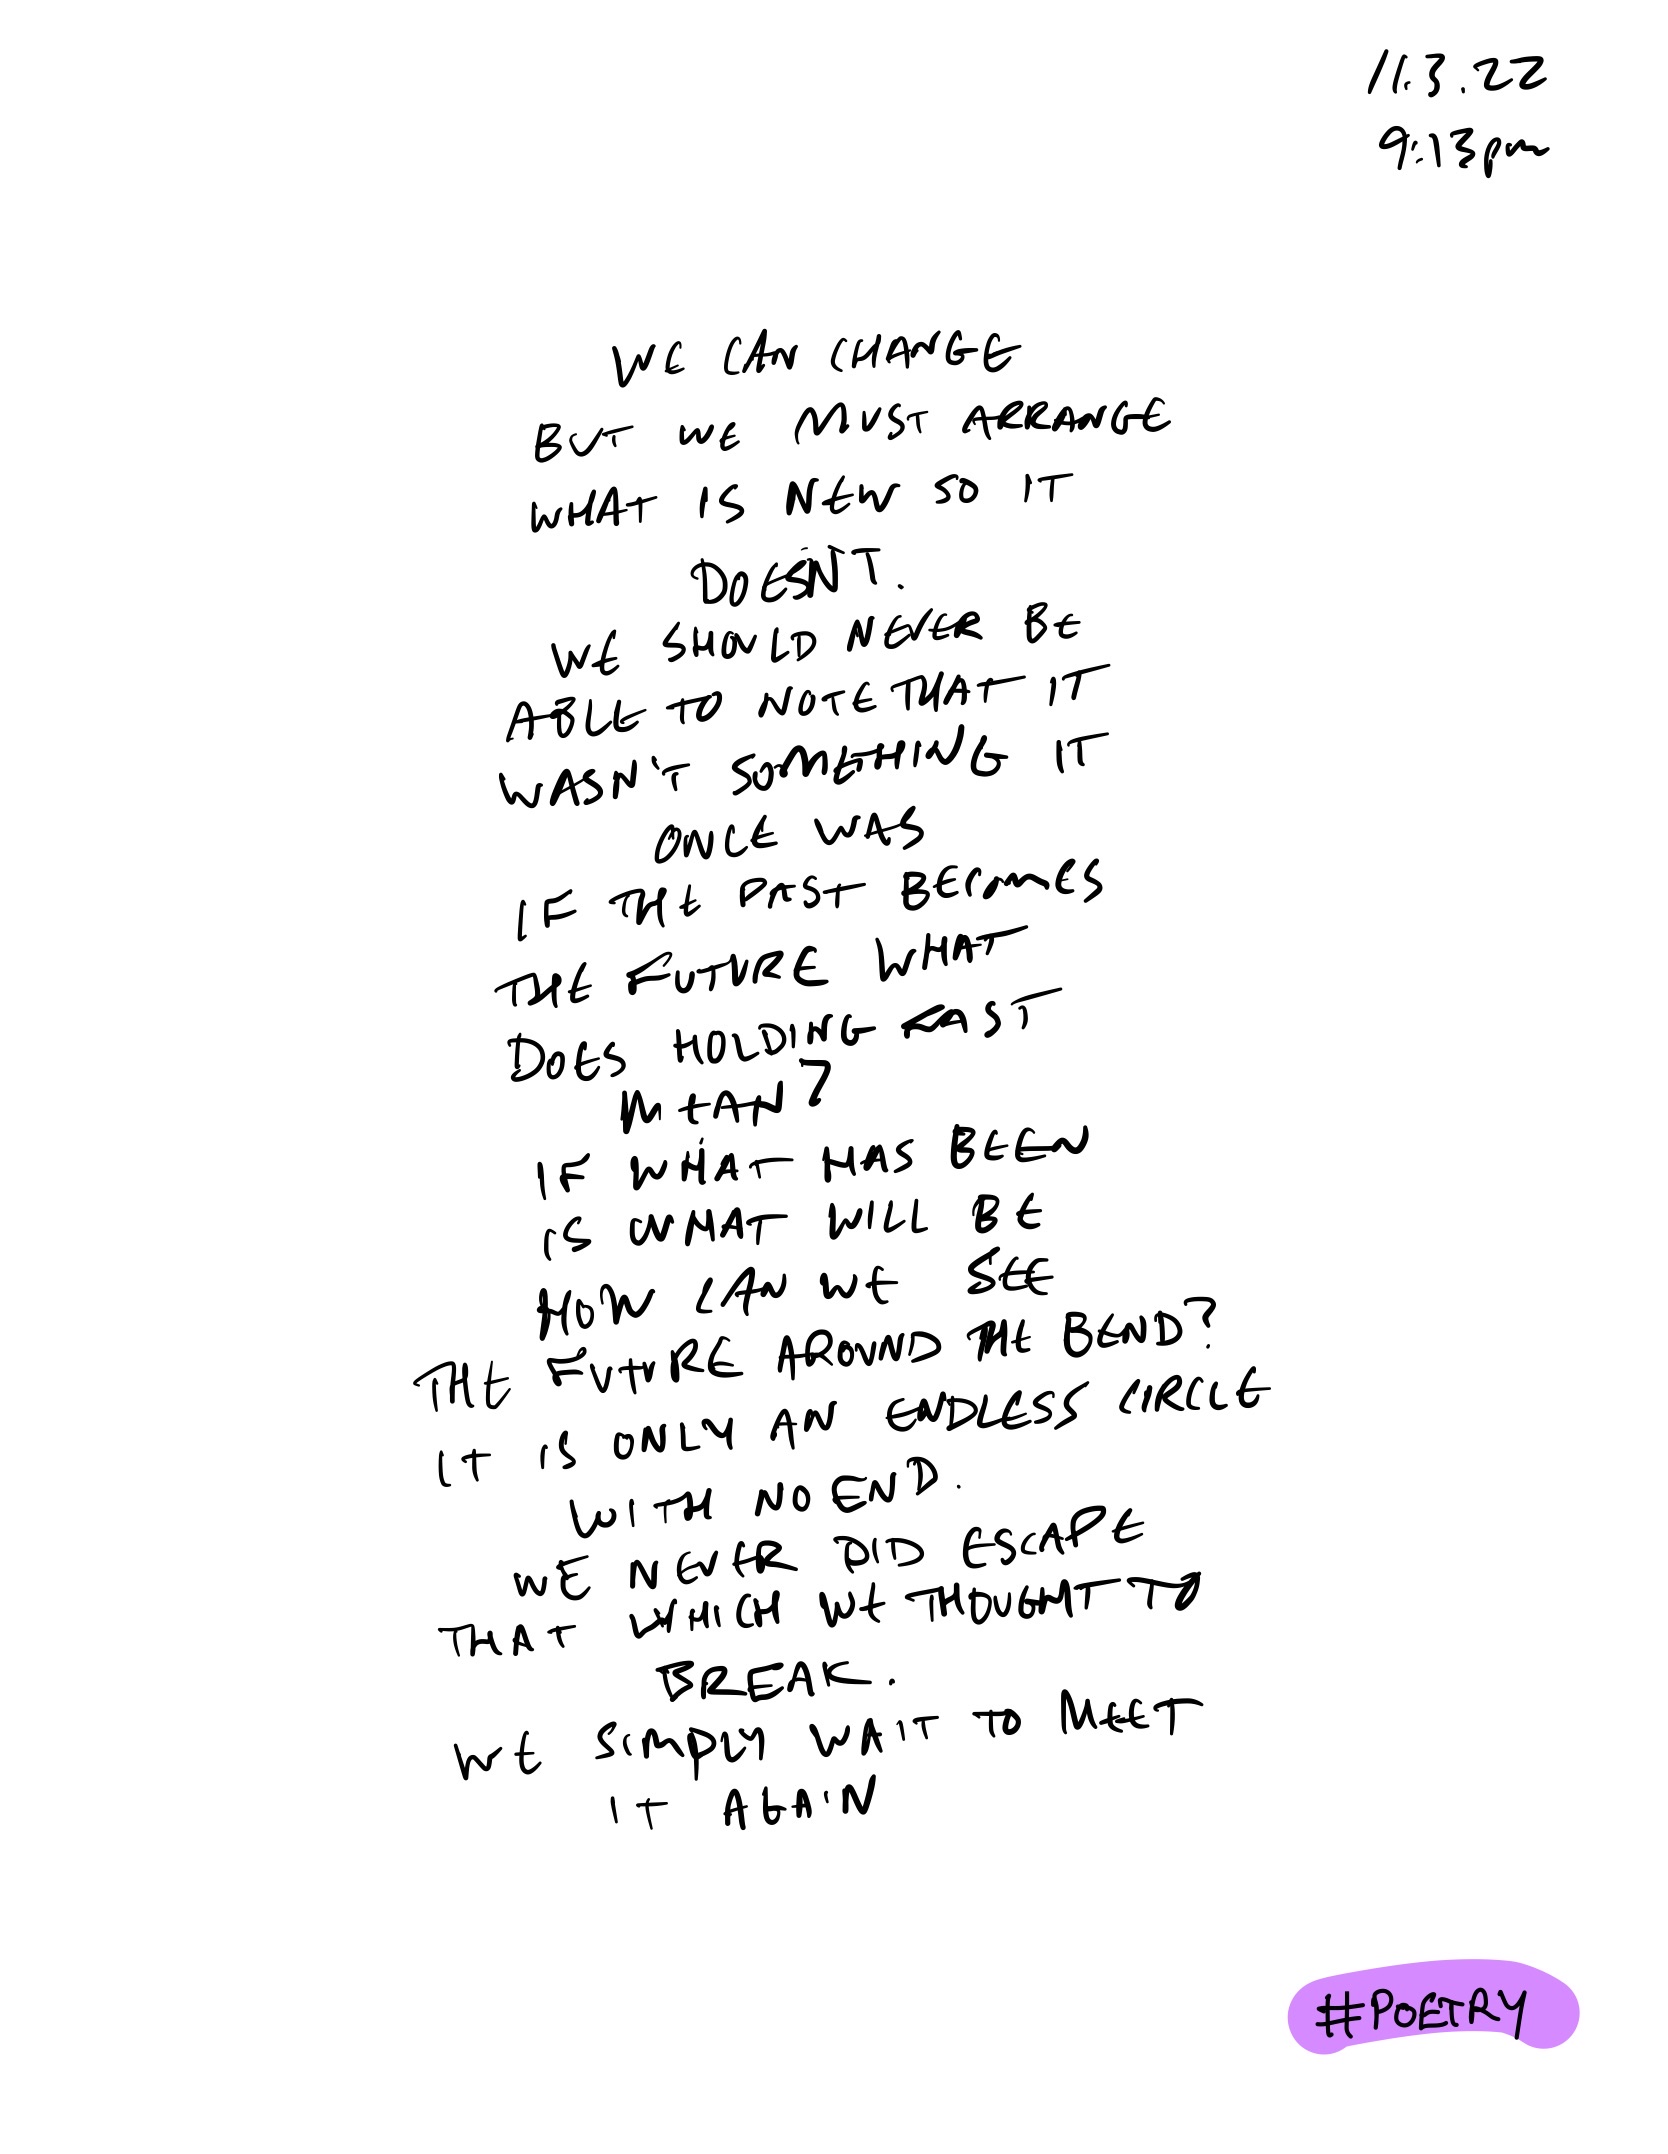 11.3.22
9:13pm
WE CAN CHANGE
BUT WE MUST ARRANGE
WHAT IS NEW SO IT
DOESN'T.
WE SHOULD NEVER BE
ABLE TO NOTE THAT IT
WASN'T SOMETHING IT
ONCE WAS
IF THE PAST BECOMES
THE FUTURE WHAT
DOES HOLDING FAST
MEAN?
IF WHAT HAS BEEN
IS WHAT WILL BE
HOW CAN WE SEE
THE FUTURE AROUND THE BEND?
IT IS ONLY AN ENDLESS CIRCLE
WITH NO END.
WE NEVER DID ESCAPE
THAT WHICH WE THOUGHT TO
BREAK.
WE SIMPLY WAIT TO MEET
IT AGAIN
#POETRY